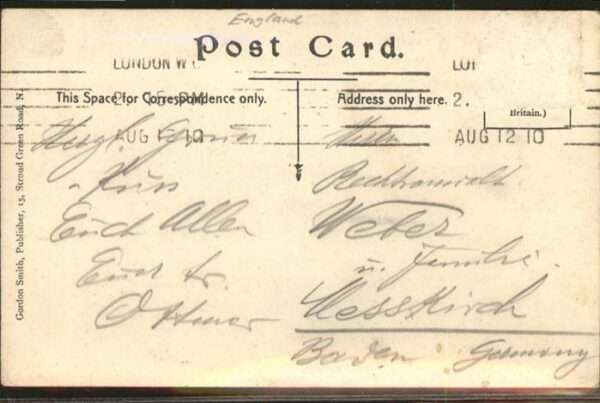 England
Post Card.
LONDON W
This Space for Correspondence only.
Address only here.
2.
Britain.)
AUG 12 10
AUG 12 10
Gordon Smith, Publisher, 15, Stroud Green Road, N.
Herzl.
Kuss
Euch Allen
Euer
Ottmar
Herrn
Rechtsanwalt
Weber
u. Familie
Messkirch
Baden Germany